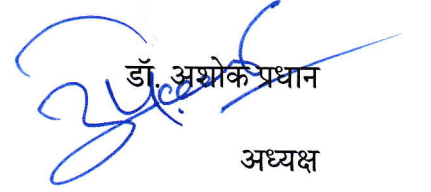 डॉ. अशोक प्रधान
अध्यक्ष